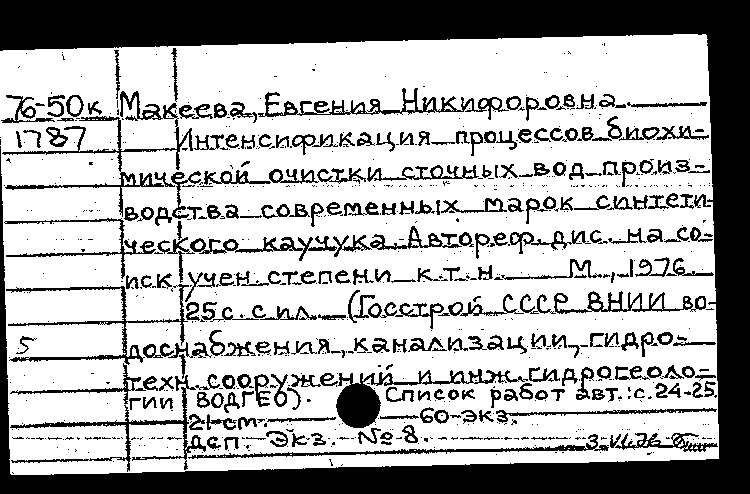 76-50к Макеева, Евгения Никифоровна.
1787 Интенсификация процессов биохи-
мической очистки сточных вод произ-
водства современных марок синтети-
ческого каучука. Автореф. дис. на со-
иск учен. степени к.т.н. М., 1976.
25 с. с ил. (Госстрой СССР ВНИИ во-
5 доснабжения, канализации, гидро-
техн. сооружений и инж. гидрогеоло-
гии ВОДГЕО). Список работ авт.: с. 24-25.
21 см. 60 экз.
Деп. экз. № 8. 3-VI.76